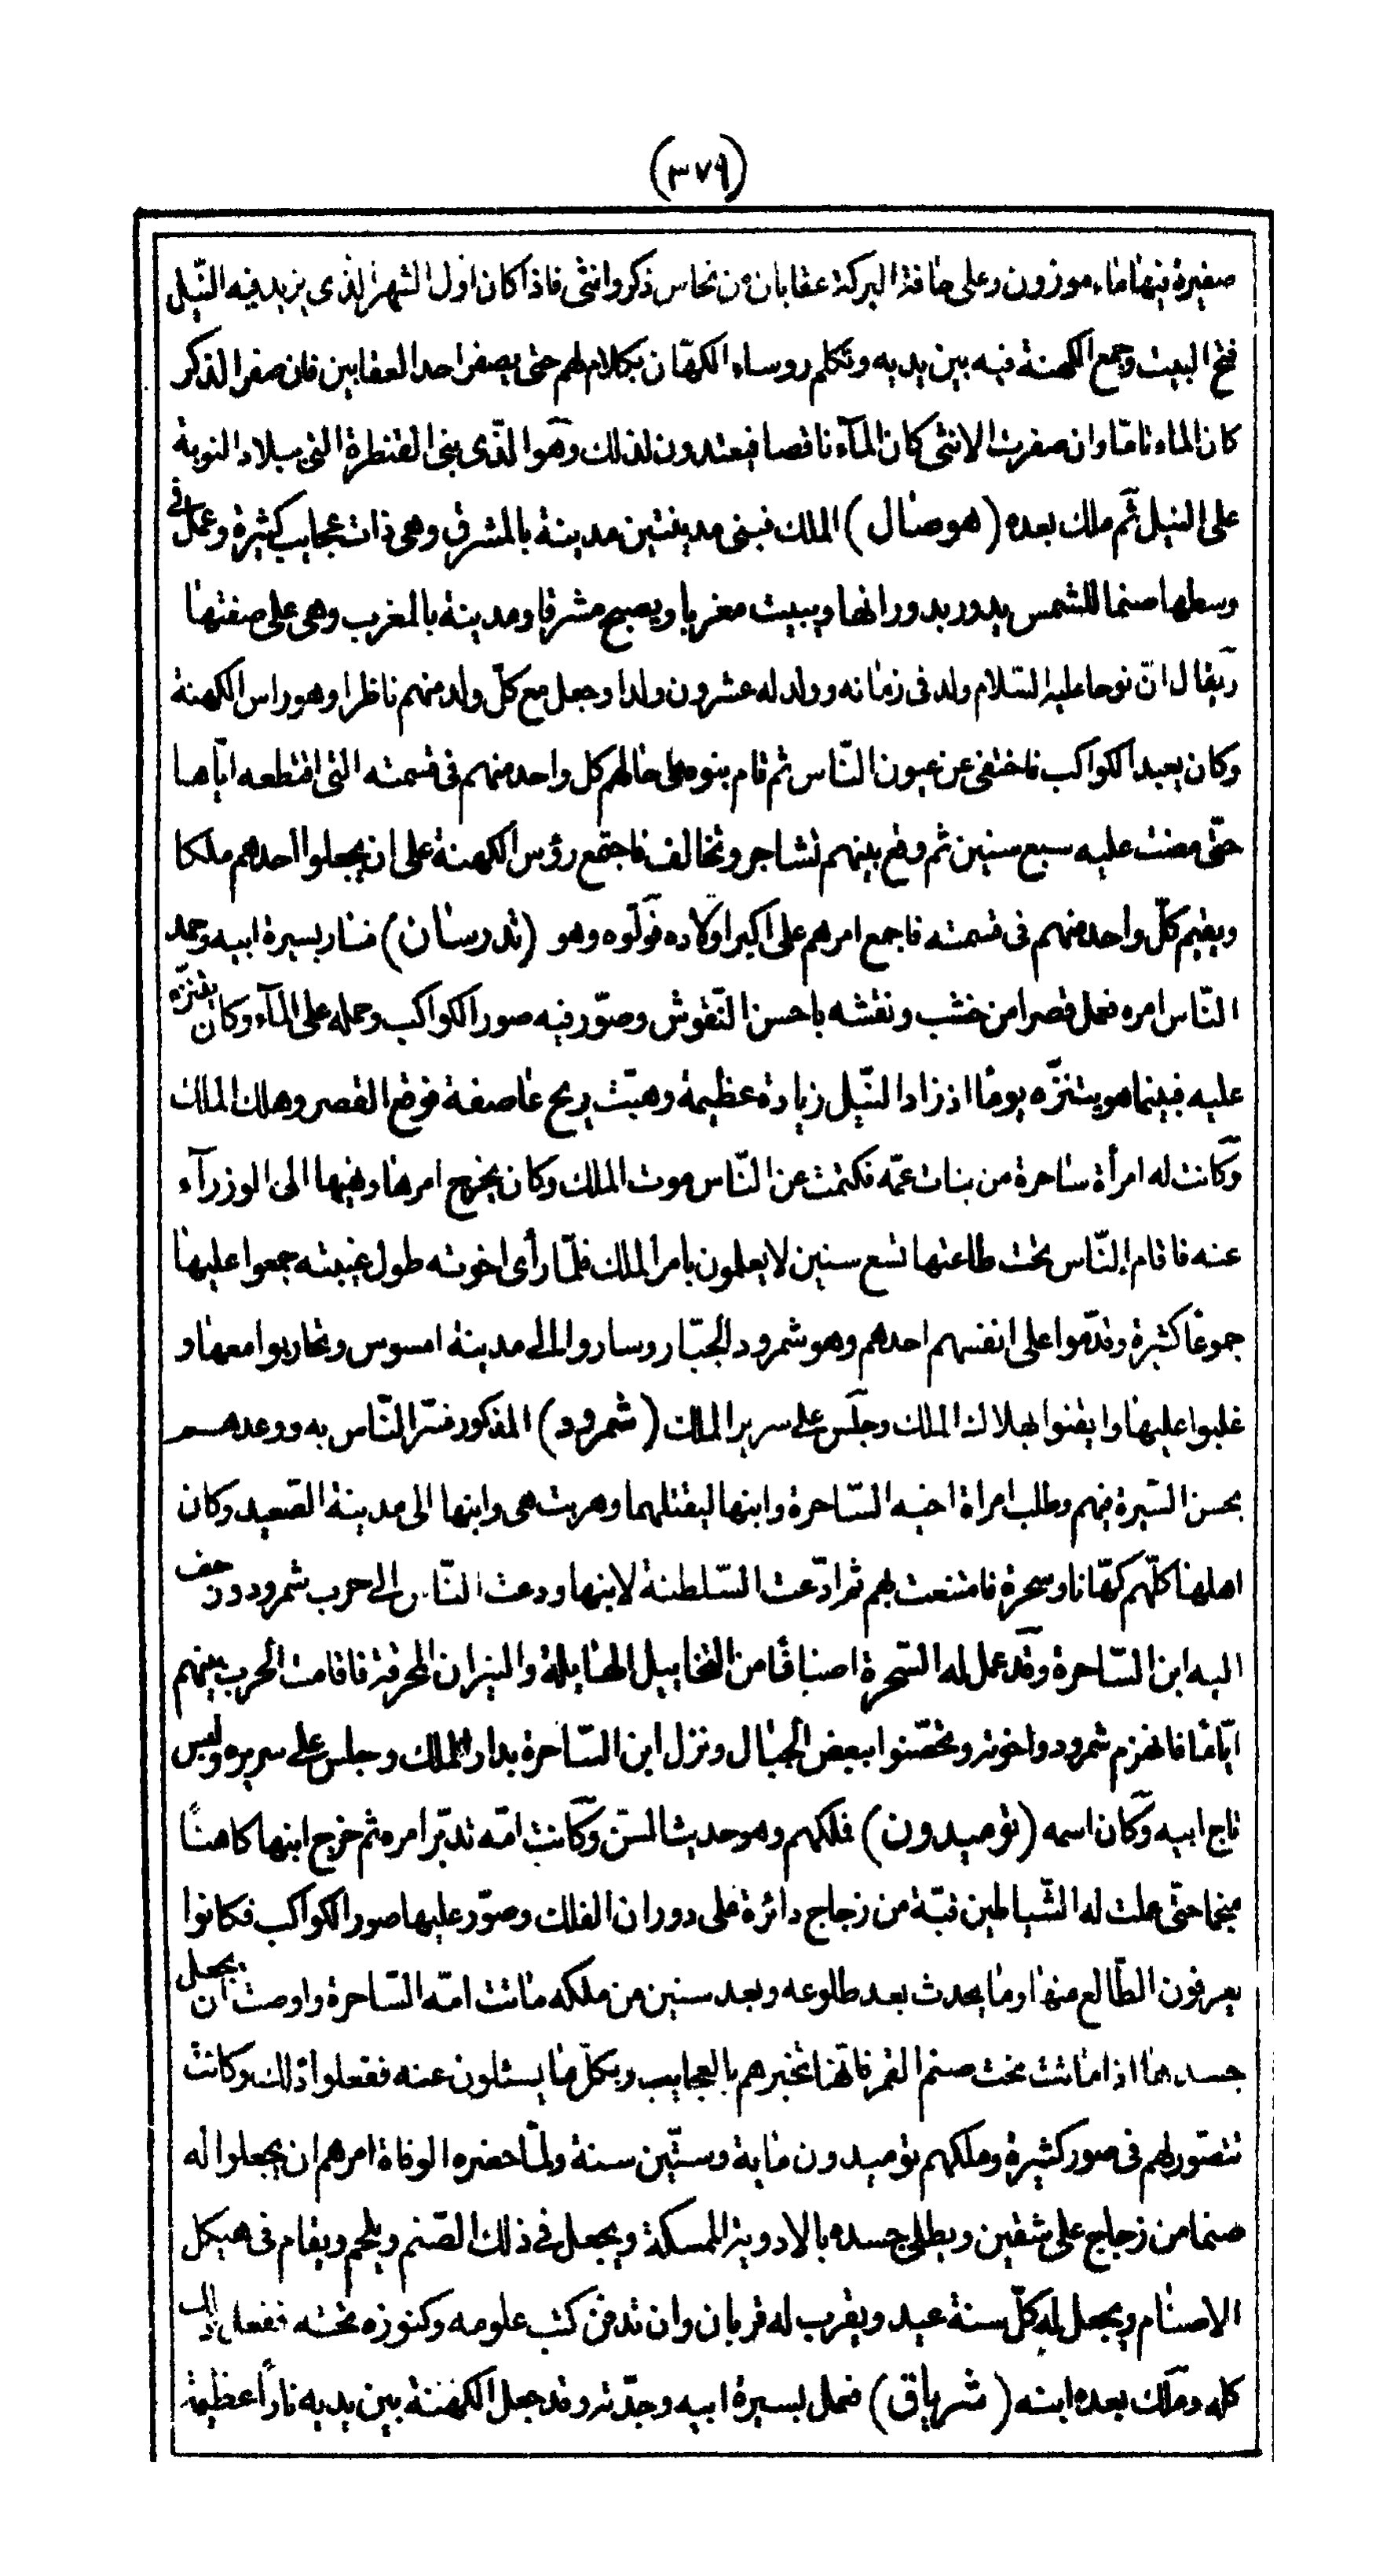 (٣٧٩)
صغيرة فيها ماء موزون وعلى حافة البركة عقابان من نحاس ذكر وانثى فاذا كان اول الشهر الذى يزيد فيه النّيل
فتح البيت وجمع الكهنة فيه بين يديه وتكلم روساء الكهّان بكلام لهم حتى يصفر احد العقابين فان صفر الذكر
كان الماء تامّا وان صفرت الانثى كان المآء ناقصا فيعتدون لذلك وهو الّذى بنى القنطرة التى ببلاد النوبة
على النيل ثم ملك بعده (هوصال) الملك فبنى مدينتين مدينة بالمشرق وهى ذات عجايب كثيرة وعمل فى
وسطها صنما للشمس يدور بدورانها ويبيت مغربا ويصبح مشرقا ومدينة بالمغرب وهى على صفتها
ويقال انّ نوحا عليه السّلام ولد فى زمانه وولد له عشرون ولدا وجعل مع كلّ ولد منهم ناظرا وهو راس الكهنة
وكان يعبد الكواكب فاختفى عن عيون النّاس ثم قام بنوه على حالهم كل واحد منهم فى قسمته التى اقتطعه ايّاها
حتّى مضت عليه سبع سنين ثم وقع بينهم تشاجر وتخالف فاجتمع رؤس الكهنة على ان يجعلوا احدهم ملكا
ويقيم كلّ واحد منهم فى قسمته فاجمع امرهم على اكبر اولاده فولّوه وهو (تدرسان) فسار بسيرة ابيه وحمد
النّاس امره فعمل قصرا من خشب ونقشه باحسن النّقوش وصوّر فيه صور الكواكب وحمله على المآء وكان يتنزّه
عليه فبينما هو يتنزّه يومًا اذ زاد النّيل زيادة عظيمة وهبّت ريح عاصفة فوقع القصر وهلك الملك
وكانت له امرأة ساحرة من بنات عمّه فكتمت عن النّاس موت الملك وكان يخرج امرها ونهيها الى الوزرآء
عنه فاقام النّاس تحت طاعتها تسع سنين لا يعلمون بامر الملك فلمّا رأى اخوته طول غيبته جمعوا عليها
جموعًا كثيرة وقدّموا على انفسهم احدهم وهو شمرود الجبّار وساروا الى مدينة امسوس وتحاربوا معها و
غلبوا عليها وايقنوا بهلاك الملك وجلس على سرير الملك (شمرود) المذكور فسّر النّاس به ووعدهم
بحسن السّيرة فيهم وطلب امراة اخيه السّاحرة وابنها ليقتلهما وهربت هى وابنها الى مدينة الصّعيد وكان
اهلها كلّهم كهّانا وسحرة فامتنعت بهم ثم ادّعت السّلطنة لابنها ودعت النّاس الى حرب شمرود وزحف
اليه ابن السّاحرة وقد عمل له السّحرة اصنافًا من التخاييل الهايلة والنيران المحرقة فاقامت الحرب بينهم
ايّامًا فانهزم شمرود واخوته وتحصّنوا ببعض الجبال ونزل ابن السّاحرة بدار الملك وجلس على سريره ولبس
تاج ابيه وكان اسمه (توميدون) فملكهم وهو حديث السنّ وكانت امّه تدبّر امره ثم خرج ابنها كاهنًا
منجما حتّى عملت له الشّياطين قبّة من زجاج دائرة على دوران الفلك وصوّر عليها صور الكواكب فكانوا
يعرفون الطّالع منها وما يحدث بعد طلوعه وبعد سنين من ملكه ماتت امّه السّاحرة واوصت ان يجعل
جسدها اذا ماتت تحت صنم القمر فانّها تخبرهم بالعجايب وبكلّ ما يسئلون عنه ففعلوا ذلك وكانت
تتصوّر لهم فى صور كثيرة وملكهم توميدون ماية وستّين سنة ولمّا حضره الوفاة امرهم ان يجعلوا له
صنما من زجاج على شقين ويطلى جسده بالادوية الممسكة ويجعل فى ذلك الصّنم ويلحم ويقام فى هيكل
الاصنام ويجعل له كلّ سنة عيد ويقرب له قربان وان تدفن كتب علومه وكنوزه تحته ففعل ذلك
كله وملك بعده ابنه (شرياق) فعمل بسيرة ابيه وجدّته وقد جعل الكهنة بين يديه نارًا عظيمة